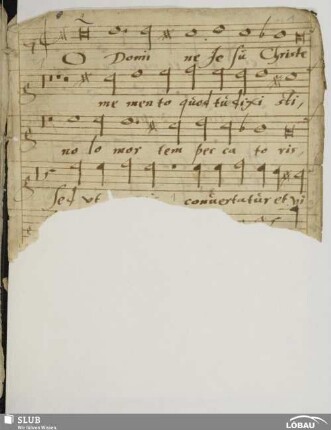 O Domi ne Je sù Christe
me mento quod tù dixi sti,
no lo mor tem pec ca to ris,
sed ut convertatùr et vi
SLUB
Wir führen Wissen.
LÖBAU